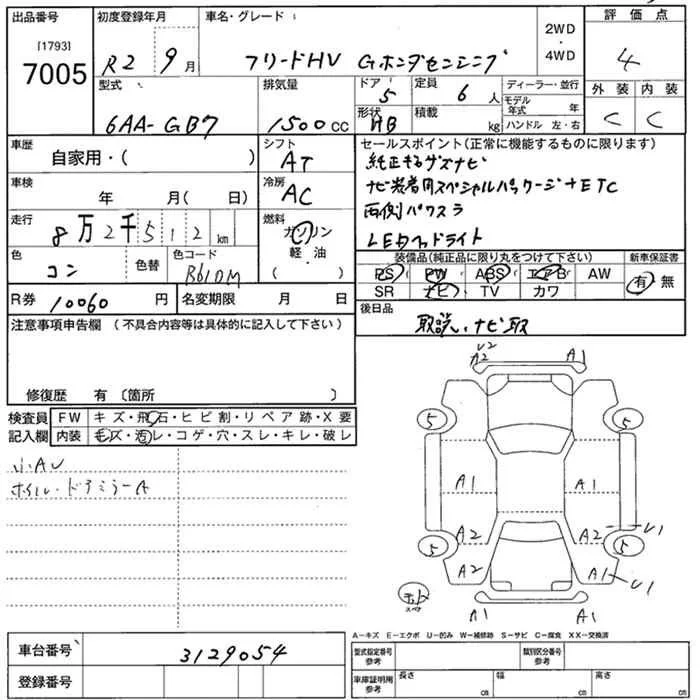 出品番号
[1793]
7005
初度登録年月
R2 9月
車名・グレード
フリードHV Gホンダセンシング
2WD
・
4WD
評価点
4
外装 内装
C C
型式
6AA-GB7
排気量
1500cc
ドア
5
形状
HB
定員
6人
積載
kg
ディーラー・並行
モデル年式 年
ハンドル 左・右
車歴
自家用・( )
シフト
AT
車検
年 月( 日)
冷房
AC
走行
8万2千512km
燃料
ガソリン
軽・油
( )
色
コン
色替
色コード
B610M
R券 10060円
名変期限 月 日
セールスポイント(正常に機能するものに限ります)
ナビ装着用スペシャルパッケージ+ETC
両側パワスラ
LEDヘッドライト
装備品(純正品に限り丸をつけて下さい)
PS PW ABS エアB AW
SR ナビ TV カワ
新車保証書
有・無
後日品
取説、ナビ取
注意事項申告欄(不具合内容等は具体的に記入して下さい)
修復歴 有〔箇所 〕
検査員
記入欄
FW キズ・飛石・ヒビ割・リペア跡・X要
内装 モズ・汚レ・コゲ・穴・スレ・キレ・破レ
小AU
ホイル・ドアミラーA
U2
A2 A1
5 5
A1 A1
A2 A2 U1
5 5
A2 A1 U1
スペア
A1 A1
A-キズ E-エクボ U-凹み W-補修跡 S-サビ C-腐食 XX-交換済
車台番号 3129054
登録番号
型式指定番号
参考
類別区分番号
参考
車庫証明用
参考
長さ cm
幅 cm
高さ cm